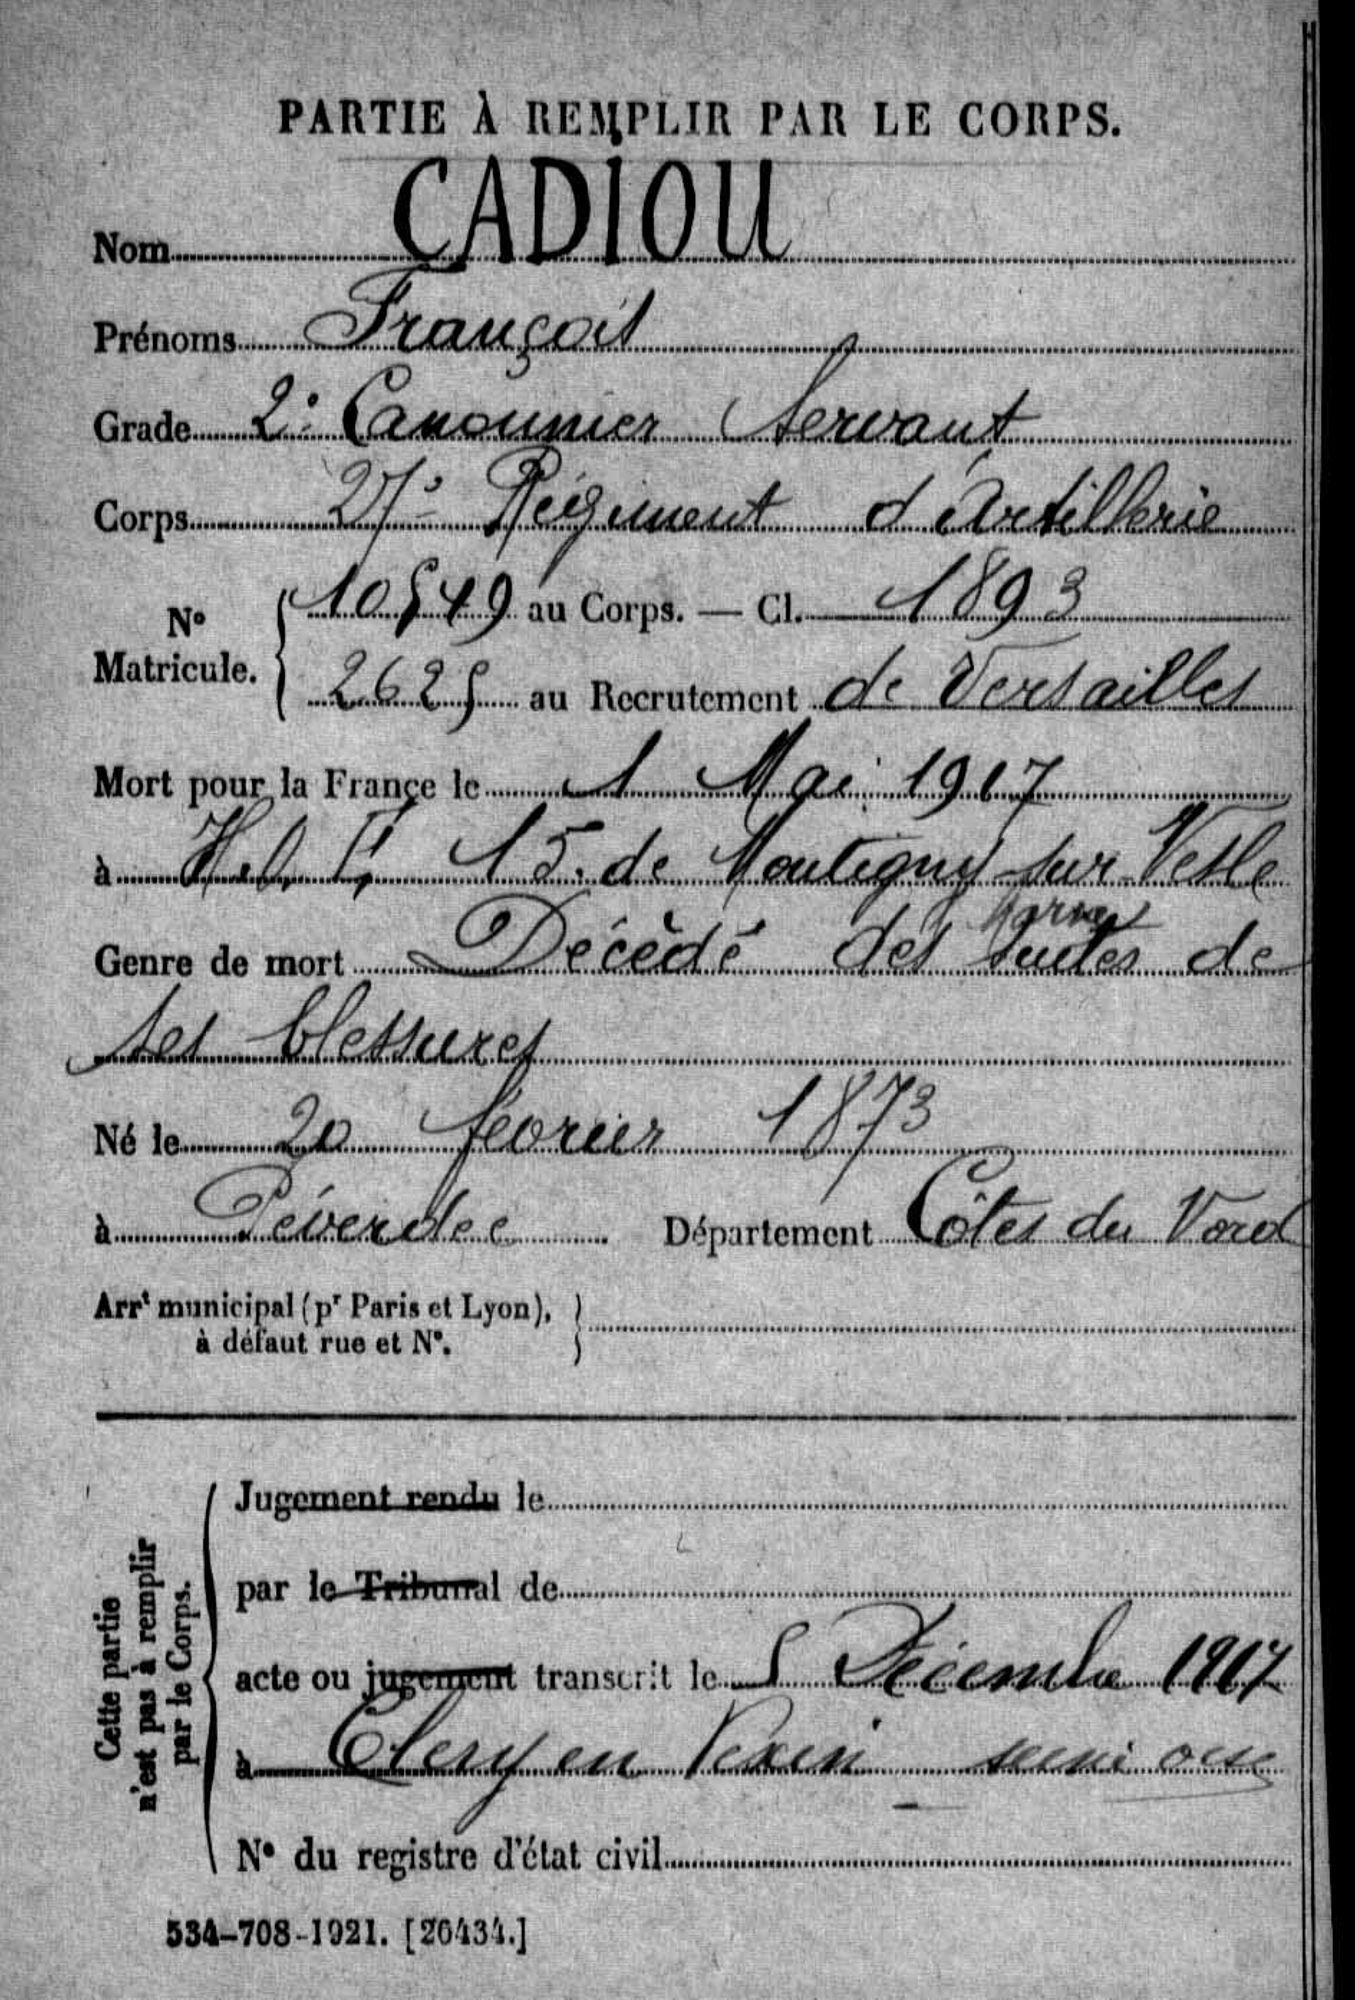 PARTIE À REMPLIR PAR LE CORPS.
Nom CADIOU
Prénoms François
Grade 2e Canonnier Servant
Corps 27e Régiment d'Artillerie
No Matricule. 10549 au Corps. — Cl. 1893
2625 au Recrutement de Versailles
Mort pour la France le 1 Mai 1917
à 15. de Montigny sur Vesle
Marne
Genre de mort Décédé des suites de
ses blessures
Né le 20 février 1873
à Péverdec Département Côtes du Nord
Arrt municipal (pr Paris et Lyon),
à défaut rue et No.
Cette partie
n'est pas à remplir
par le Corps.
Jugement rendu le
par le Tribunal de
acte ou jugement transcrit le 5 Décembre 1917
à Clery en Vexin seine oise
No du registre d'état civil
534-708-1921. [26434.]